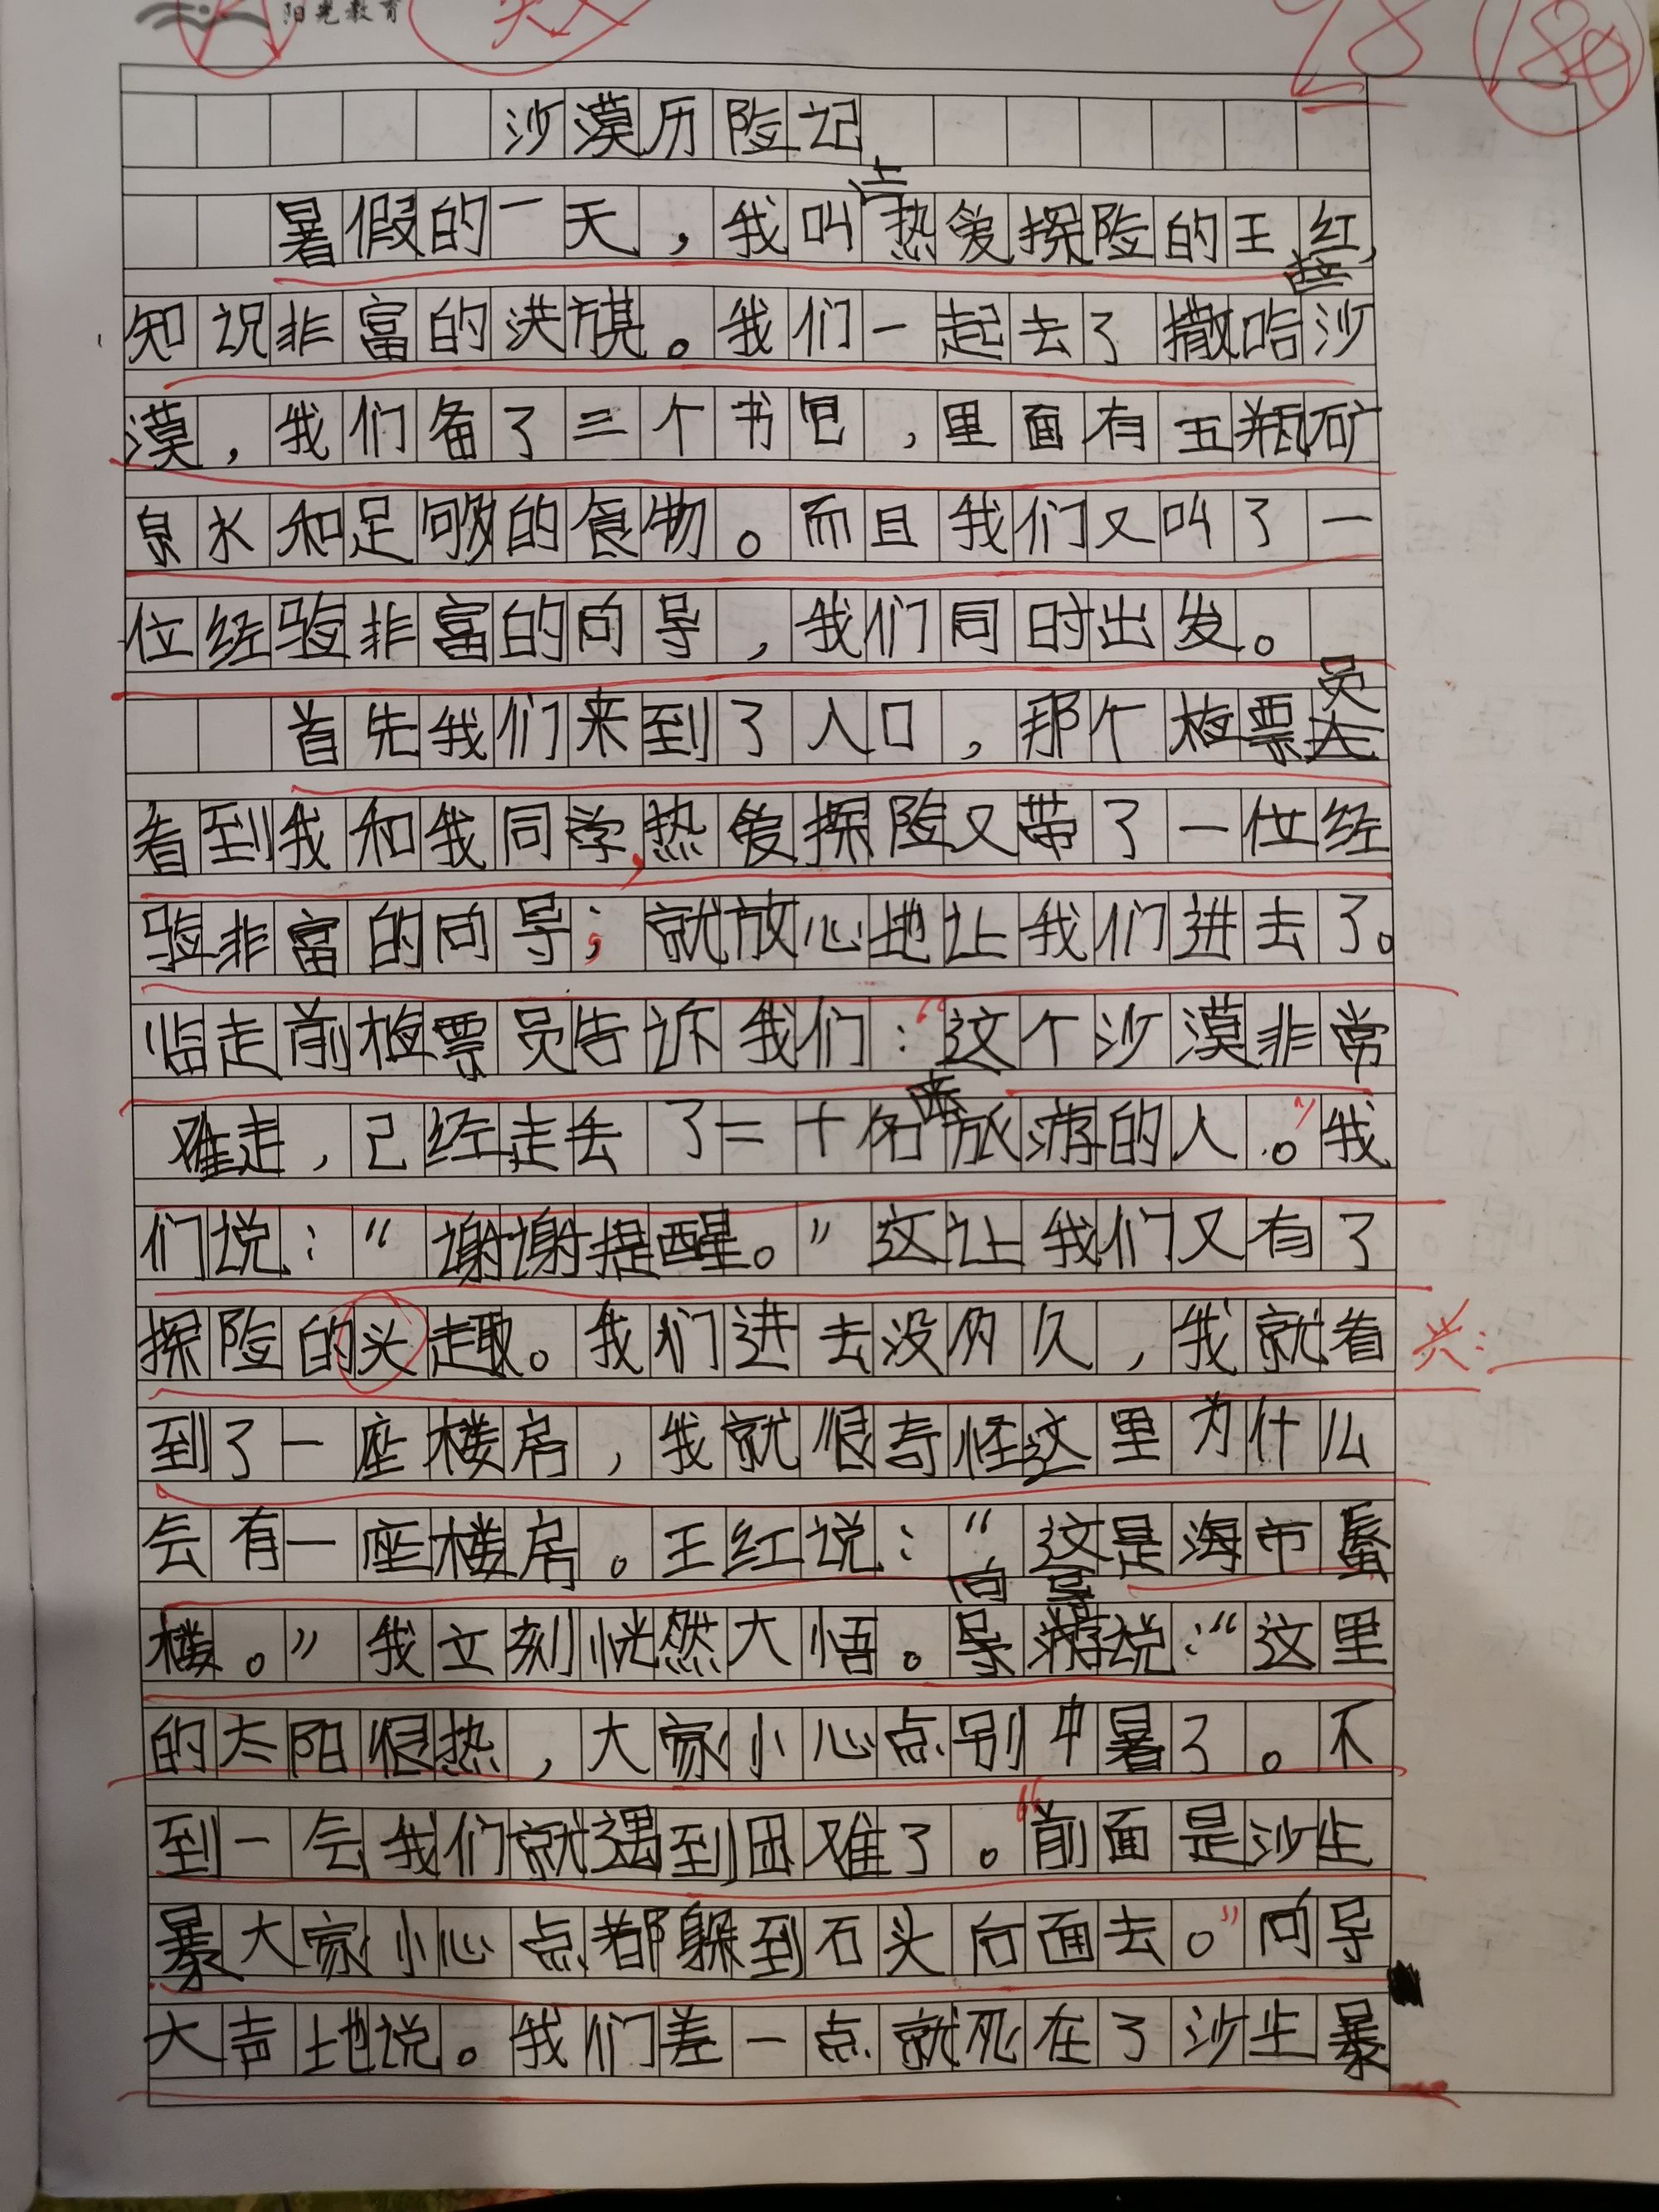 阳光教育
98
沙漠历险记
暑假的一天，我叫上热爱探险的王红，
知识非富的洪旗。我们一起去了撒哈沙
漠，我们备了三个书包，里面有五瓶矿
泉水和足够的食物。而且我们又叫了一
位经验非富的向导，我们同时出发。
首先我们来到了入口，那个检票员
看到我和我同学，热爱探险又带了一位经
验非富的向导；就放心地让我们进去了。
临走前检票员告诉我们：“这个沙漠非常
难走，已经走丢了二十名来旅游的人。”我
们说：“谢谢提醒。”这让我们又有了
探险的头趣。我们进去没多久，我就看
兴：
到了一座楼房，我就很奇怪这里为什么
会有一座楼房。王红说：“这是海市蜃
楼。”我立刻恍然大悟。向导说：“这里
的太阳很热，大家小心点别中暑了。不
到一会我们就遇到困难了。“前面是沙尘
暴大家小心点都躲到石头后面去。”向导
大声地说。我们差一点就死在了沙尘暴